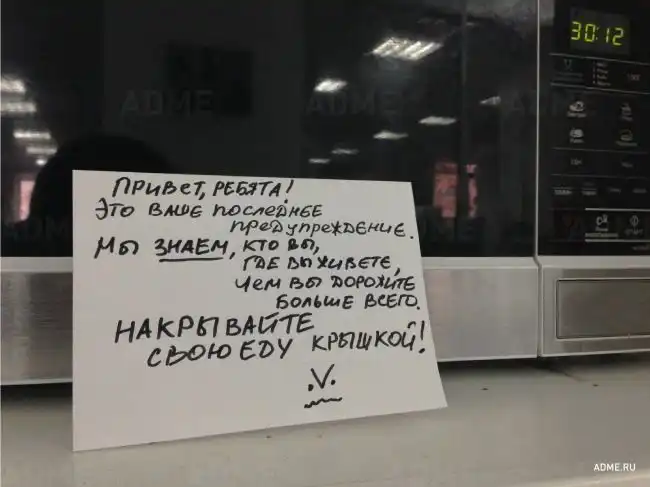 30:12
ПРИВЕТ, РЕБЯТА!
ЭТО ВАШЕ ПОСЛЕДНЕЕ
ПРЕДУПРЕЖДЕНИЕ.
МЫ ЗНАЕМ, КТО ВЫ,
ГДЕ ВЫ ЖИВЕТЕ,
ЧЕМ ВЫ ДОРОЖИТЕ
БОЛЬШЕ ВСЕГО.
НАКРЫВАЙТЕ
СВОЮ ЕДУ КРЫШКОЙ!
.V.
ADME
ADME.RU